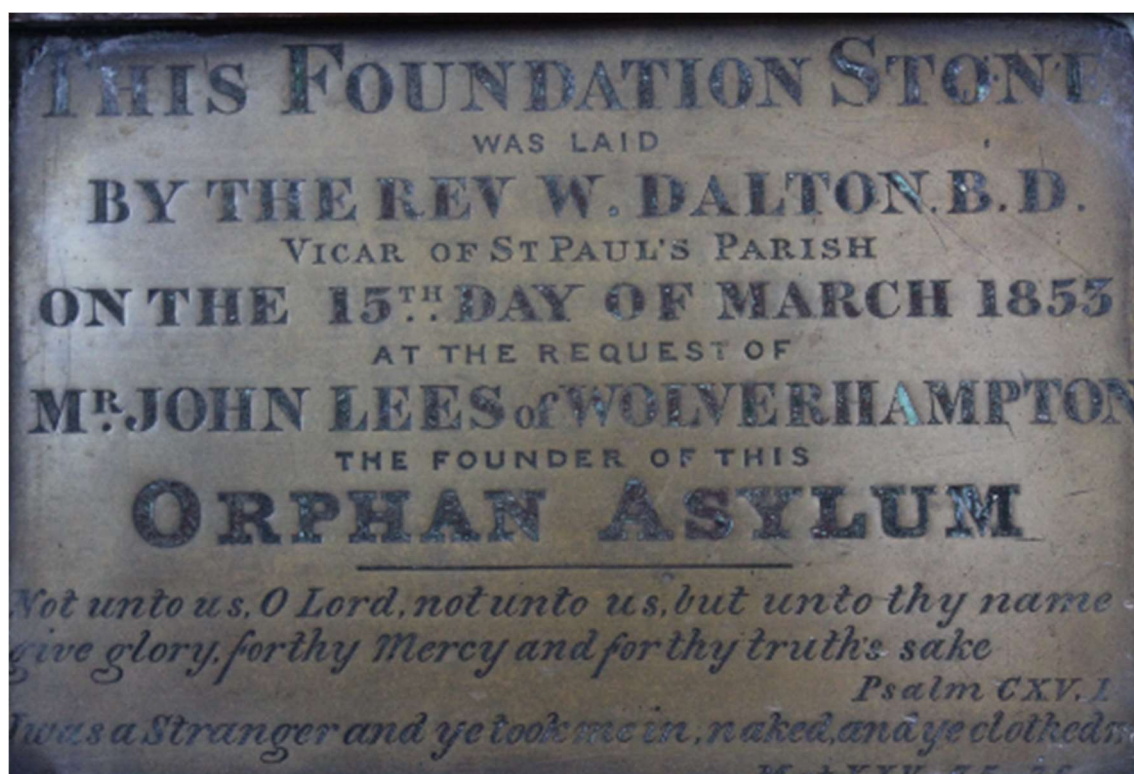 THIS FOUNDATION STONE
WAS LAID
BY THE REV W. DALTON. B. D.
VICAR OF ST PAUL'S PARISH
ON THE 15TH DAY OF MARCH 1853
AT THE REQUEST OF
MR. JOHN LEES of WOLVERHAMPTON
THE FOUNDER OF THIS
ORPHAN ASYLUM
Not unto us, O Lord, not unto us, but unto thy name
give glory, for thy Mercy and for thy truth's sake
Psalm CXV. 1
I was a Stranger and ye took me in, naked, and ye clothed